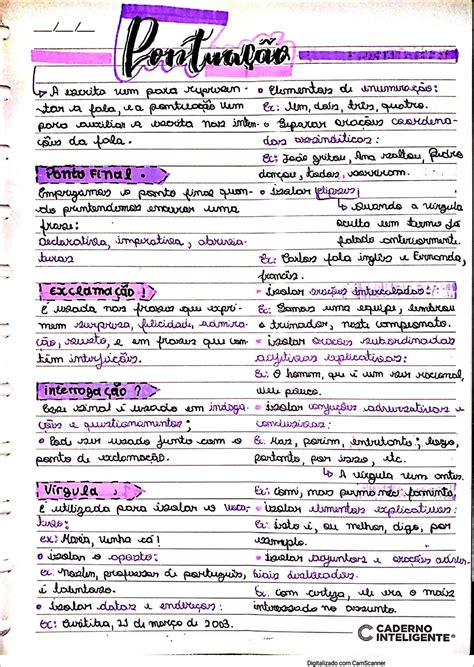 __/__/__
Pontuação
↳ A escrita vem para represen-
tar a fala, e a pontuação vem
para auxiliar a escrita nas inten-
ções da fala.
Ponto Final .
Empregamos o ponto final quan-
do pretendemos encerrar uma
frase:
Declarativa, imperativa, abrevia-
turas
exclamação !
É usada nas frases que expri-
mem surpresa, felicidade, admira-
ção, susto, e em frases que con-
têm interjeições.
interrogação ?
Esse sinal é usado em indaga-
ções e questionamentos;
• Pode ser usado junto com o
ponto de exclamação.
Vírgula
É utilizada para isolar o voca-
tivo:
ex: Maria, venha cá!
• isolar o aposto:
Ex: professor de português,
é talentoso.
• isolar datas e endereços:
Ex: Curitiba, 21 de março de 2003.
• Elementos de enumeração:
Ex: Um, dois, três, quatro.
• Separar orações coordena-
das assindéticas:
Ex: João gritou, Ana saltou, Pedro
dançou, todos sorriram.
• isolar elipses:
↳ Quando a vírgula
oculta um termo já
falado anteriormente.
Ex: Carlos fala inglês e Fernanda,
francês.
• isolar orações intercaladas:
Ex: Somos uma equipe, lembrou
o treinador, neste campeonato.
• isolar orações subordinadas
adjetivas explicativas:
Ex: O homem, que é um ser racional,
pouco.
• isolar conjunções adversativas e
conclusivas:
Ex: Mas, porém, entretanto; logo,
portanto, por isso, etc.
↳ A vírgula vem antes.
Ex: Comi, mas permaneço faminto.
• isolar elementos explicativos:
Ex: Isto é, ou melhor, digo, por
exemplo.
• isolar adjuntos e orações adver-
biais deslocados.
Ex: Com certeza, ele era o mais
interessado no assunto.
CADERNO
INTELIGENTE®
Digitalizado com CamScanner